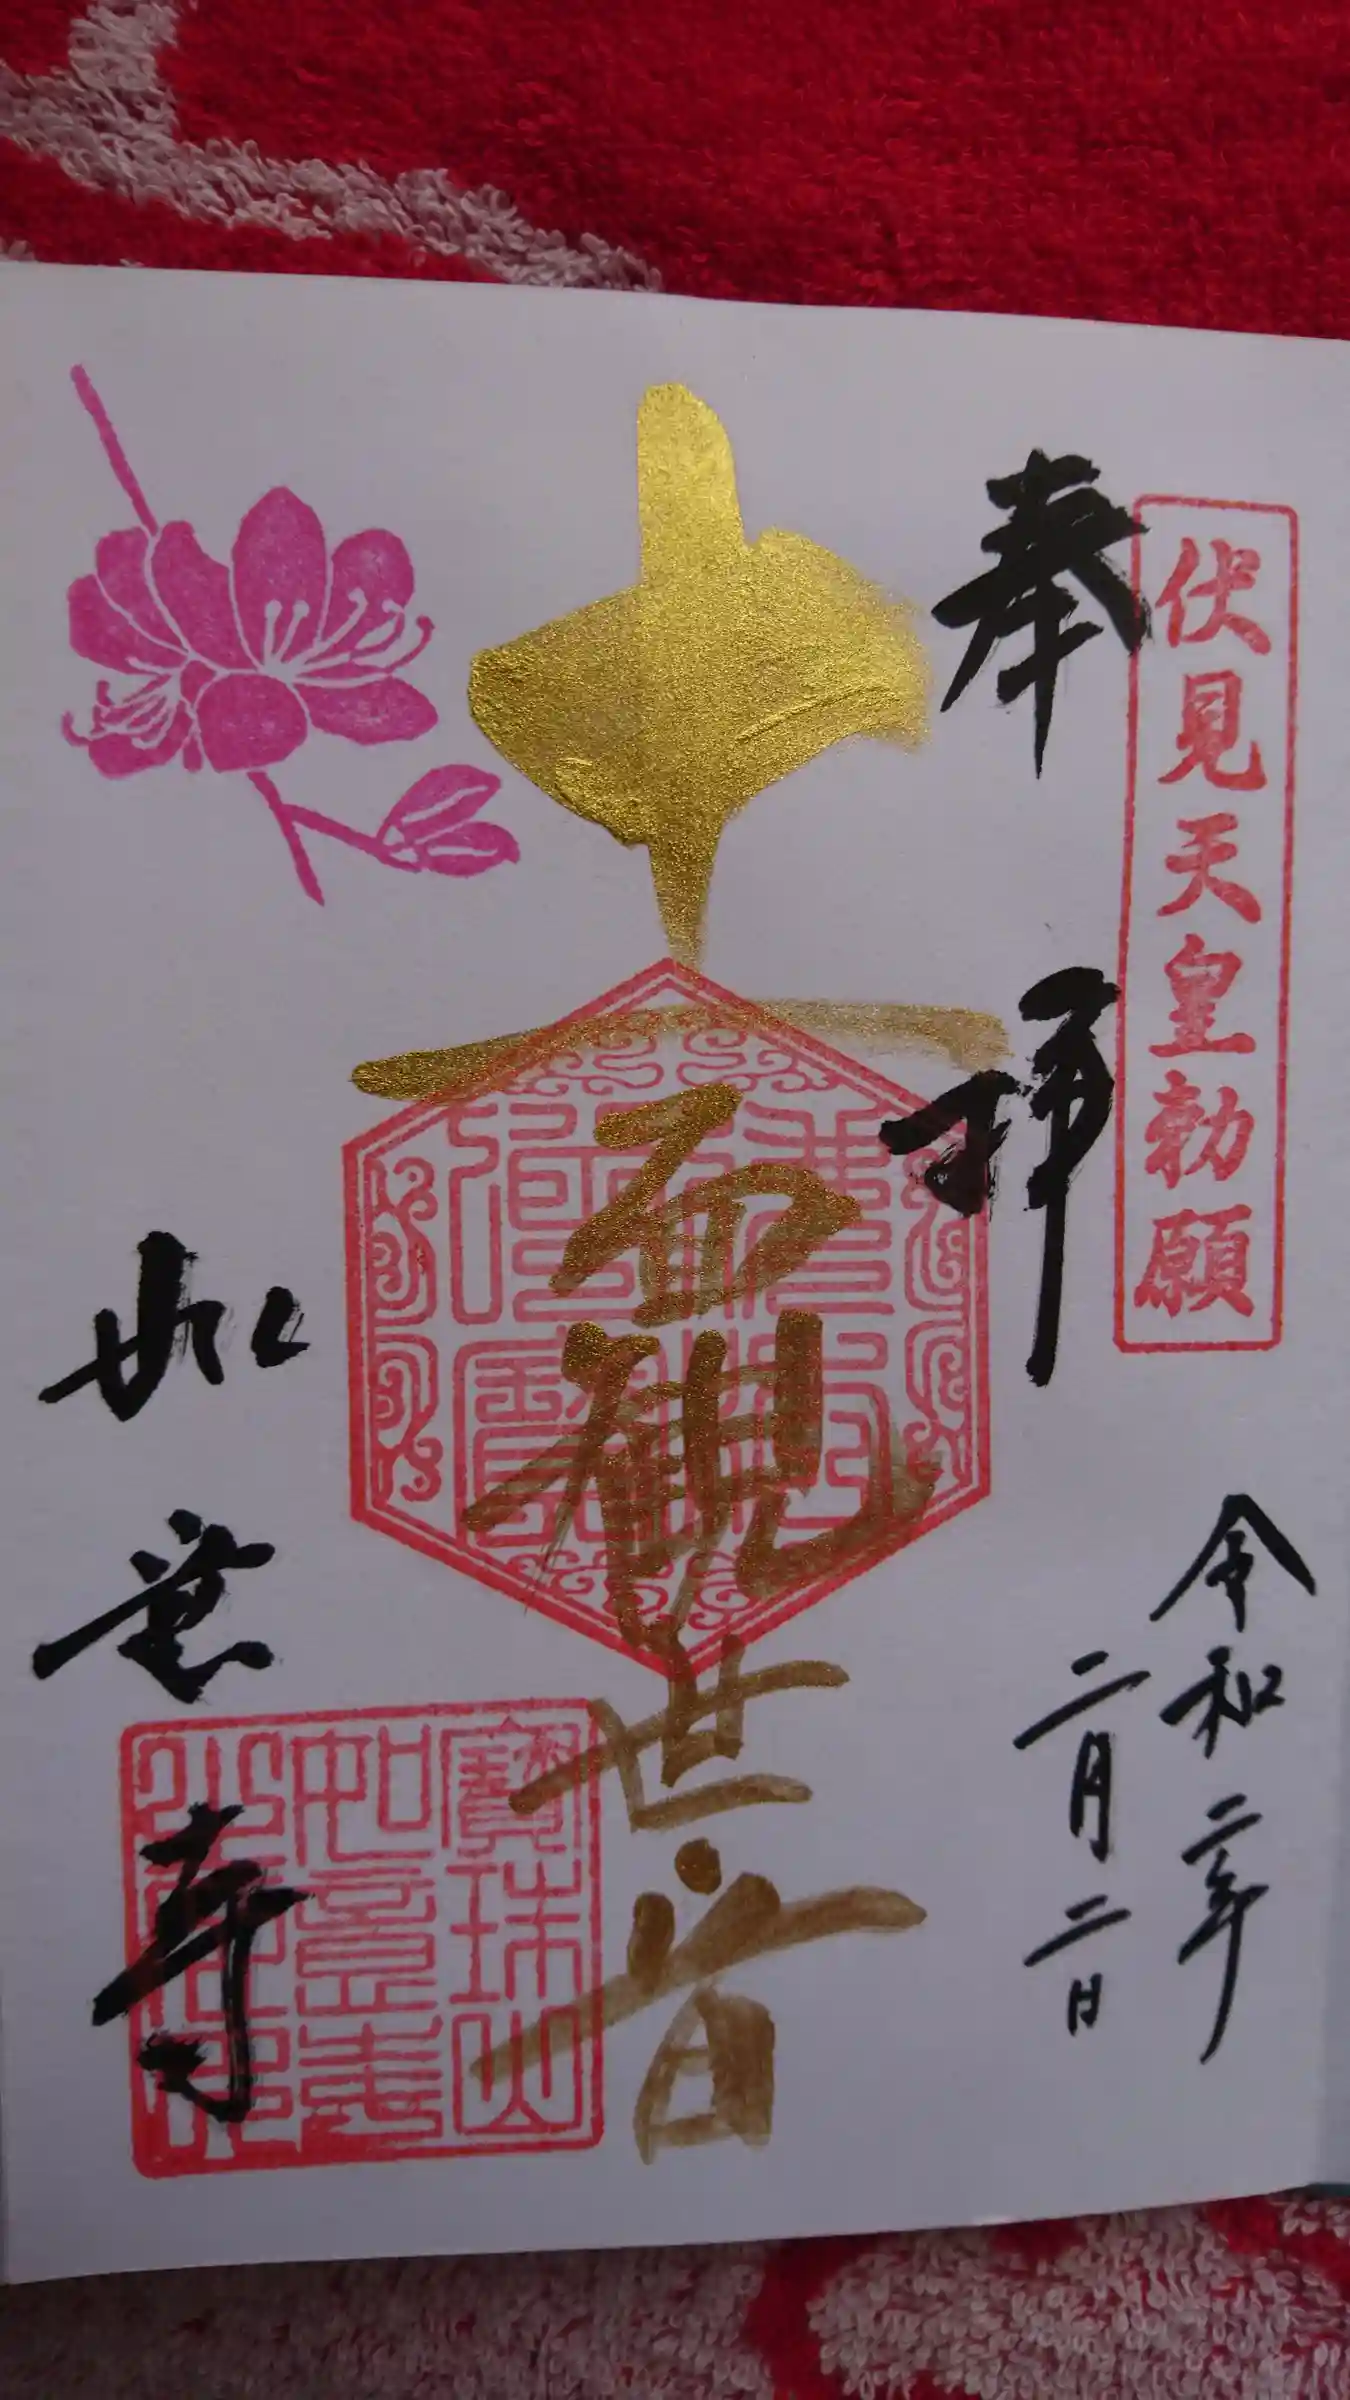 伏見天皇勅願
奉拝
令和二年
二月二日
十一面観世音
如意寺
寶珠山
如意寺